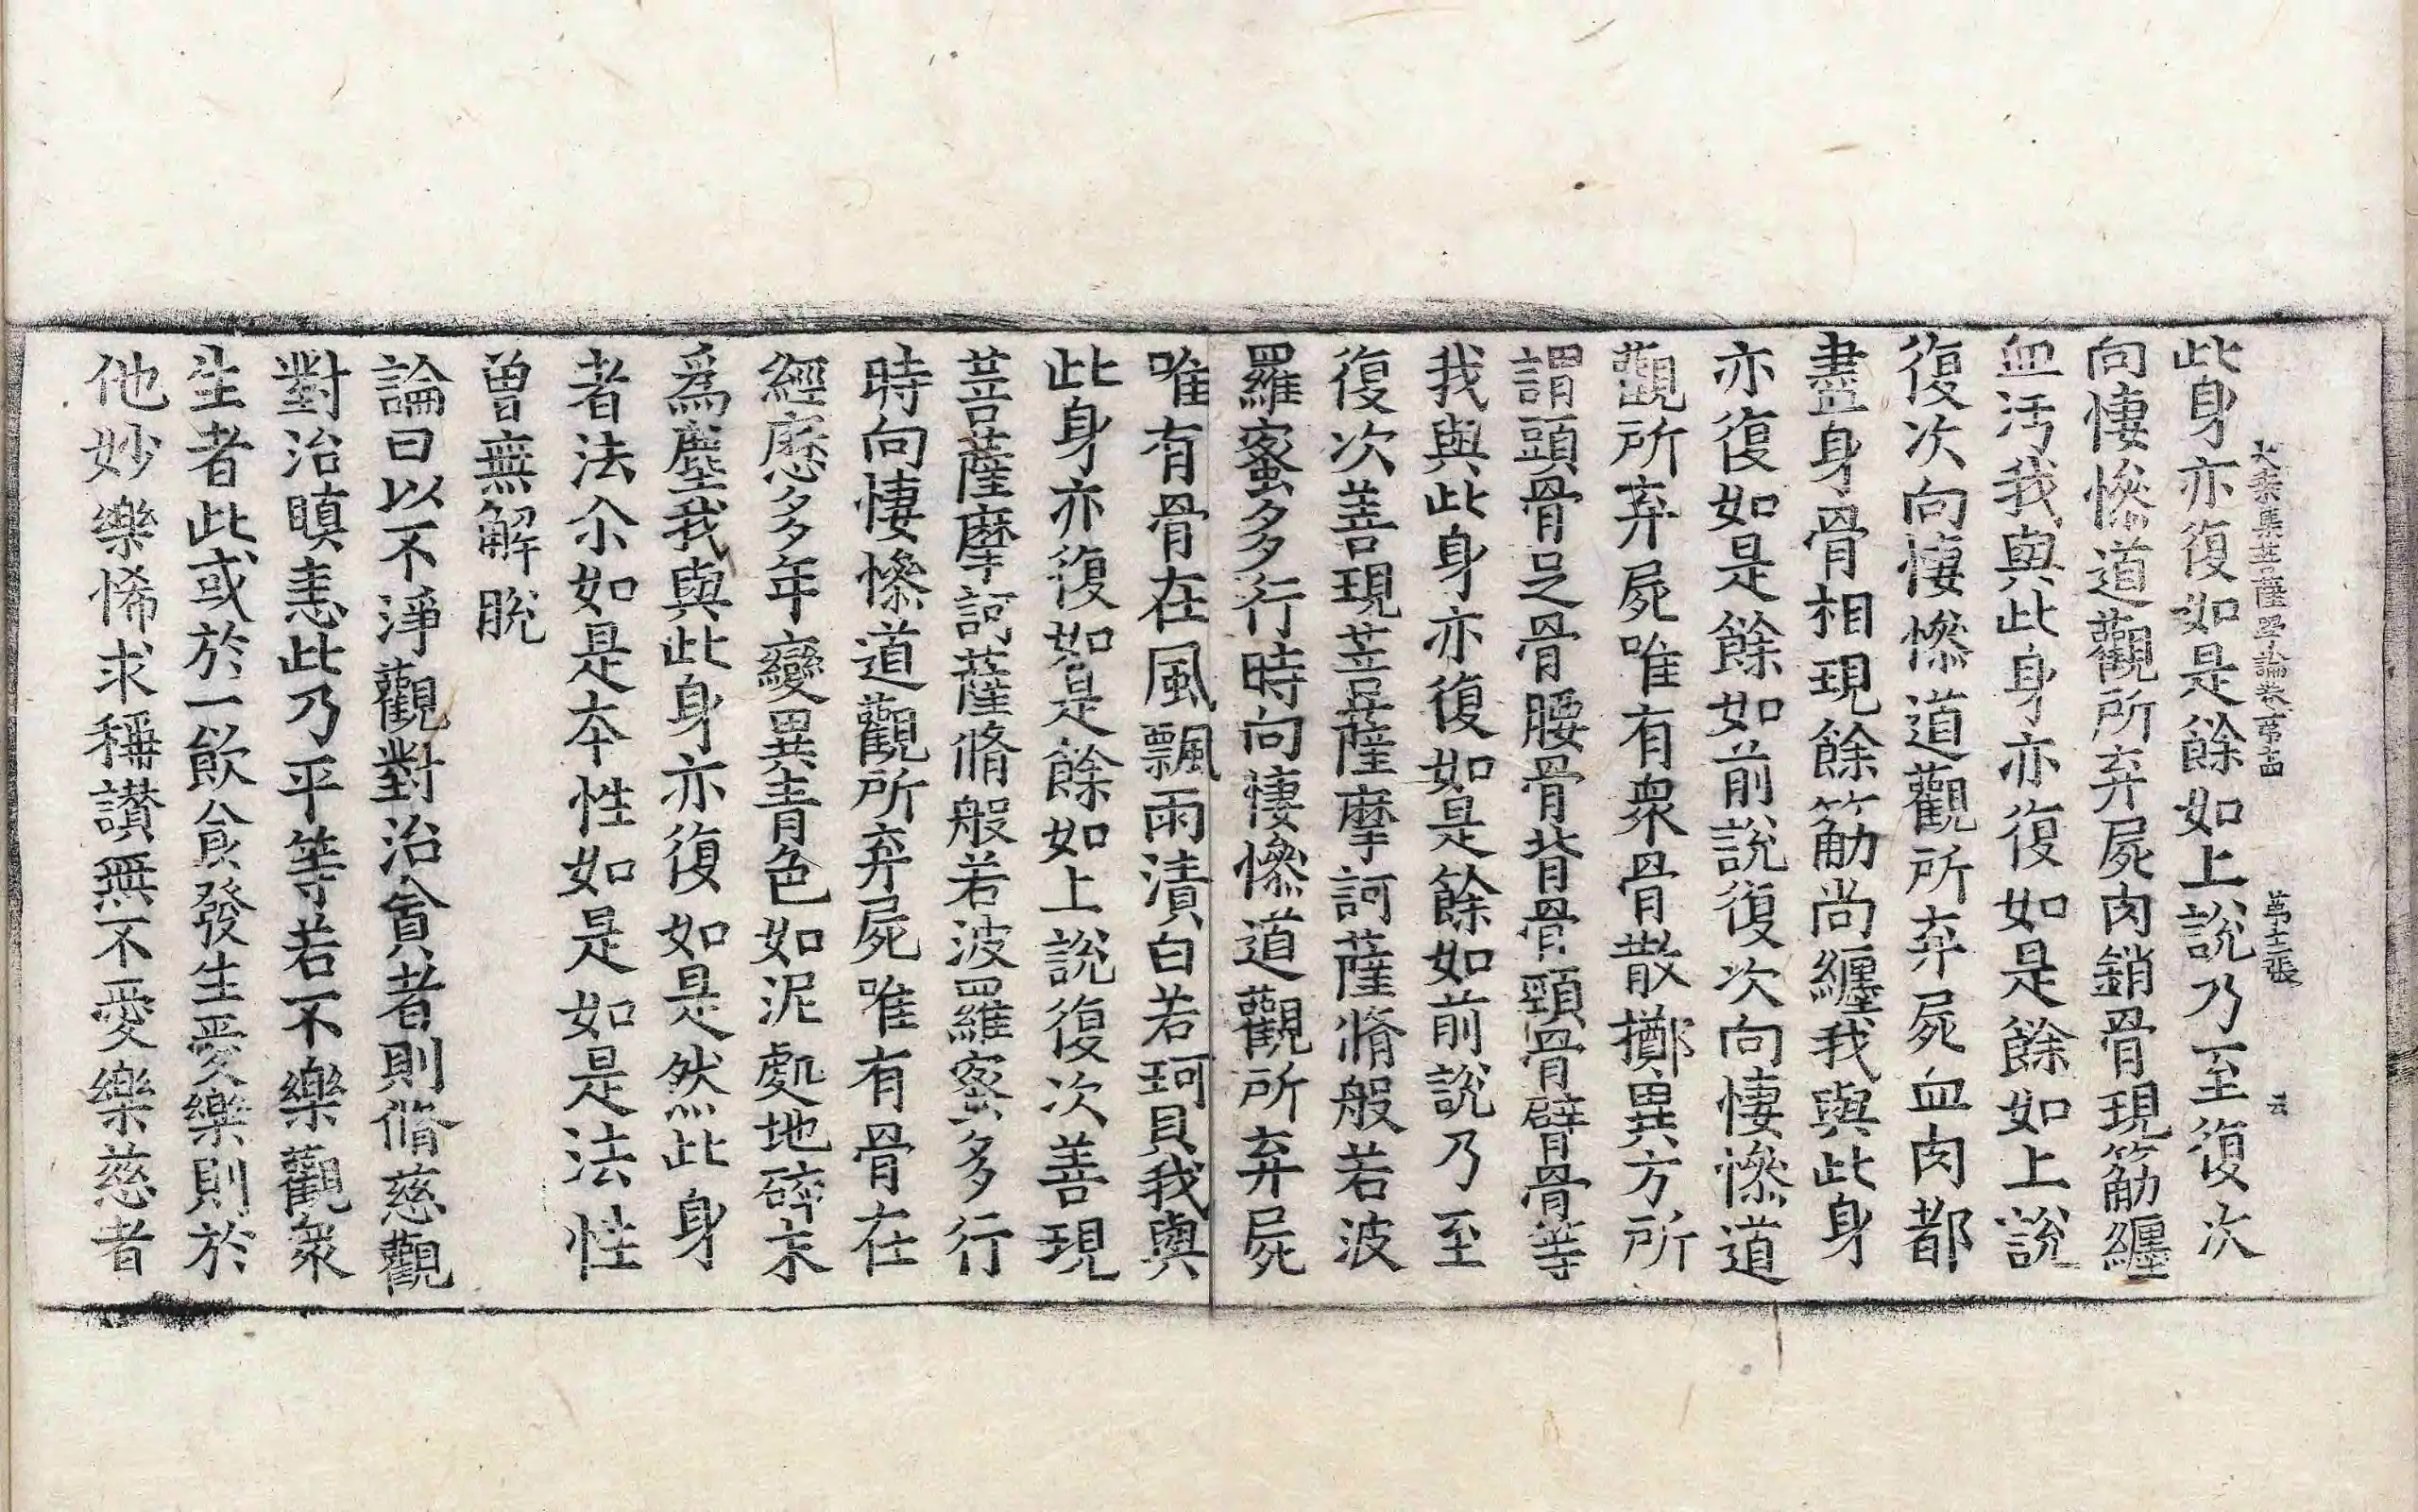 大乘集菩薩學論卷第十四 第十二張 云
此身亦復如是餘如上說乃至復次
向悽慘道觀所弃屍肉銷骨現筋纏
血汚我與此身亦復如是餘如上說
復次向悽慘道觀所弃屍血肉都
盡身骨相現餘筋尚纏我與此身
亦復如是餘如前說復次向悽慘道
觀所弃屍唯有衆骨散擲異方所
謂頭骨足骨腰骨背骨頸骨臂骨等
我與此身亦復如是餘如前說乃至
復次善現菩薩摩訶薩脩般若波
羅蜜多行時向悽慘道觀所弃屍
唯有骨在風飄雨漬白若珂貝我與
此身亦復如是餘如上說復次善現
菩薩摩訶薩脩般若波羅蜜多行
時向悽慘道觀所弃屍唯有骨在
經歷多年變異青色如泥處地碎末
爲塵我與此身亦復如是然此身
者法尒如是本性如是如是法性
曾無解脫
論曰以不淨觀對治貪者則脩慈觀
對治瞋恚此乃平等若不樂觀衆
生者此或於一飮食發生愛樂則於
他妙樂悕求稱讃無不愛樂慈者